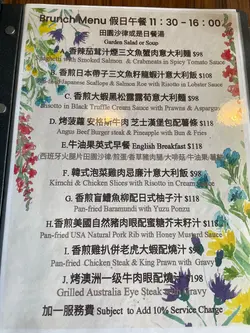 Brunch Menu 假日午餐 11：30 - 16：00
田園沙律或是日餐湯
Garden Salad or Soup
A. 香辣茄蓉汁煙三文魚蟹肉意大利麵 $98
with Smoked Salmon & Crabmeats in Spicy Tomato Sauce
B. 香煎日本帶子三文魚籽龍蝦汁意大利飯 $118
Japanese Scallops & Salmon Roe with Risotto in Lobster Sauce
C. 香煎大蝦黑松露露筍意大利飯 $98
Risotto in Black Truffle Cream Sauce with Prawns & Asparagus
D. 烤菠蘿 安格斯牛肉 芝士漢堡包配薯條 $118
Angus Beef Burger steak & Pineapple with Bun & Fries
E. 牛油果英式早餐 English Breakfast $118
F. 韓式泡菜雞肉忌廉汁意大利飯 $98
Kimchi & Chicken Slices with Risotto in Cream
G. 香煎盲鰽魚柳配日式柚子汁 $118
Pan-fried Baramundi with Yuzu Ponzu
H. 香煎美國自然豬肉眼配蜜糖芥末籽汁 $118
Pan-fried USA Natural Pork Rib with Honey Mustard Sauce
I. 香煎雞扒併老虎大蝦配燒汁 $118
Pan-fried Chicken Steak & King Prawn with Gravy
J. 烤澳洲一级牛肉眼配燒汁 $198
Grilled Australia Eye Steak with Gravy
加一服務費 Subject to Add 10% Service Charge